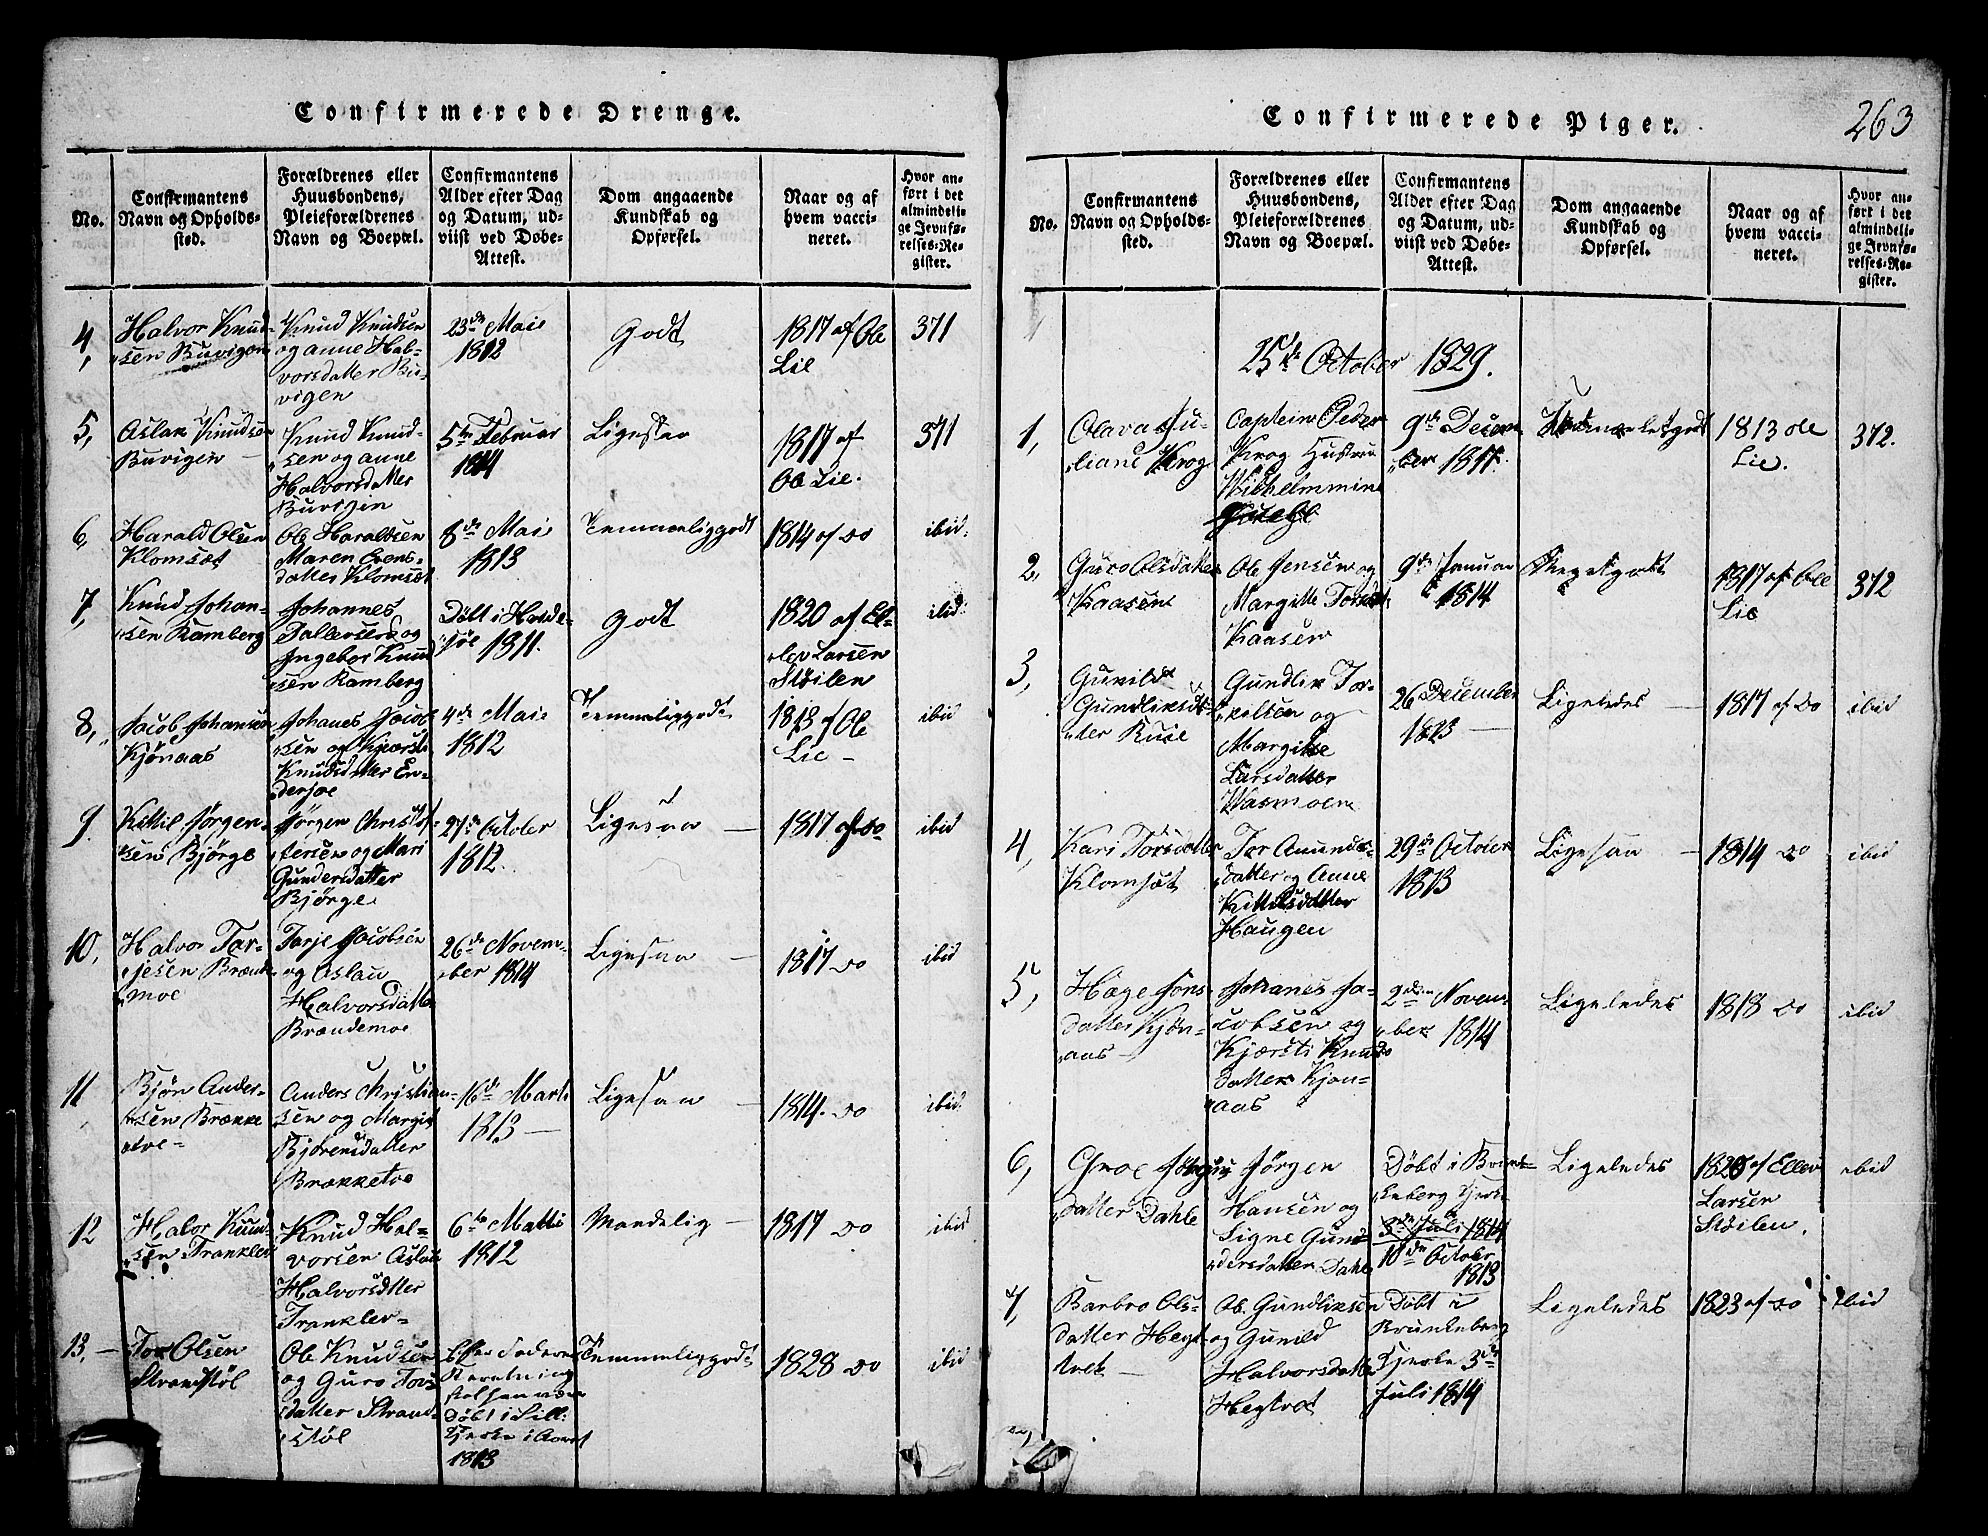 Confirmerede Drenge.
No.
Confirmantens
Navn og Opholds-
sted.
Forældrenes eller
Huusbondens,
Pleieforældrenes
Navn og Boepæl.
Confirmantens
Alder efter Dag
og Datum, ud-
viist ved Døbe-
Attest.
Dom angaaende
Kundskab og
Opførsel.
Naar og af
hvem vacci-
neret.
Hvor an-
ført i det
almindeli-
ge Jevnfø-
relses-Re-
gister.
4,
Halvor Knud-
sen Buvigen
Knud Knudsen
og Anne Hal-
vorsdatter Bu-
vigen
23de Maie
1812
Godt
1817 af Ole
Lie
371
5,
Aslak Knudsen
Buvigen
Knud Knud-
sen og Anne
Halvorsdatter
Buvigin
5te Februar
1814
Ligesaa
1817 af
Ole Lie.
371
6,
Harald Olsen
Klomset
Ole Haraldsen
Maren
datter Klomset
8de Maie
1813
Temmeliggodt
1814 af do
ibid.
7,
Knud Johan-
sen Ramberg
Johannes
Tallevsen og
Ingebor Knud
sen Ramberg
Døbt i
1811.
Godt
1820 af El-
lev Larsen
Støilen
ibid.
8,
Jacob Johansen
Kjønaas
Johanes Jacob
sen og Kjærsti
Knudsdatter En-
derjoe
4de Maie
1812
Temmeliggodt
1818 af Ole
Lie
ibid
9.
Kittil Jørgen-
sen Bjørge
Jørgen Christof-
fersen og Mari
Gundersdatter
Bjørge
27de October
1812.
Ligesaa
1817 af do
ibid
10,
Halvor Tar-
jesen Brænde
moe
Tarje Jacobsen
og Aslau
Halvorsdatter
Brændemoe
26de Novem-
ber 1814
Ligesaa
1817 do
ibid
11
Bjøn Ander-
sen Brække
toe
Anders Christian-
sen og Margit
Bjørensdatter
Brækketoe
16de Marti
1813
Ligesaa
1814. do
ibid.
12
Halvor Knud-
sen Trankler
Knud Hal-
vorsen Aslau
Halvorsdtter
Trankler
6te Martii
1812
Maadelig
1817 do
ibid
13,
Tor Olsen
Strandstøl
Ole Knudsen
og Guro Tors
datter Strand
støl
Efter Faderens
Beretning
skal han være
Døbt i Sill:
Kjerke i Aaret
1813
Temmeliggodt
1828 do
ibid
Confirmerede Piger.
263
No.
Confirmantens
Navn og Opholds-
sted.
Forældrenes eller
Huusbondens,
Pleieforældrenes
Navn og Boepæl.
Confirmantens
Alder efter Dag
og Datum, ud-
viist ved Døbe-
Attest.
Dom angaaende
Kundskab og
Opførsel.
Naar og af
hvem vacci-
neret.
Hvor an-
ført i det
almindeli-
ge Jevnfø-
relses-Re-
gister.
25de October 1829.
1,
Olava Ju-
liane Krog
Captein Peder
Krog Hustrue
Wilhelmmine
9de Decem-
ber 1811.
1813 Ole
Lie.
372.
2,
Guro Olsdatter
Kaasene
Ole Jensen og
Margitte Torsdt
Kaasen
9de Januar
1814
Megetgodt
1817 af Ole
Lie
372
3,
Gunild
Gundliksdt-
ter Ruie
Gundlik Tor-
kilsen og
Margitte
Larsdatter
Wasmoen
26 December
1813
Ligeledes
1817 af do
ibid
4,
Kari Torsdatter
Klomset
Tor Amunds-
datter og Anne
Kittilsdatter
Haugen
29de October
1813
Ligesaa
1814 do
ibid
5,
Hæge Jons
datter Kjøn-
aas
Johanes Ja-
cobsen og
Kjærsti Knuds
datter Kjøn-
aas
2den Novem-
ber 1814
Ligeledes
1818 do
ibid
6,
Groe Jørgens
datter Dahle
Jørgen
Hansen og
Signe Gun-
dersdatter Dahle
Døbt i Brunk-
eberg Kjerke
3de Juli 1814
10de October
1813
Ligeledes
1820 af Ellev
Larsen
Støilen.
ibid
7,
Barbro Ols-
datter Hegt
vet
Ole Gundliksen
og Gunild
Halvorsdatter
Hegtvet
Døbt i
Brunkeberg
Kjerke 3de
Juli 1814
Ligeledes
1823 af do
ibid